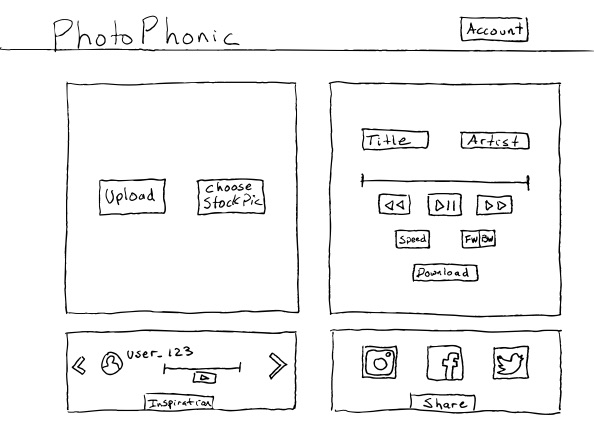 PhotoPhonic
Account
Upload
choose
StockPic
Title
Artist
Speed
FW BW
Download
user_123
Inspiration
Share